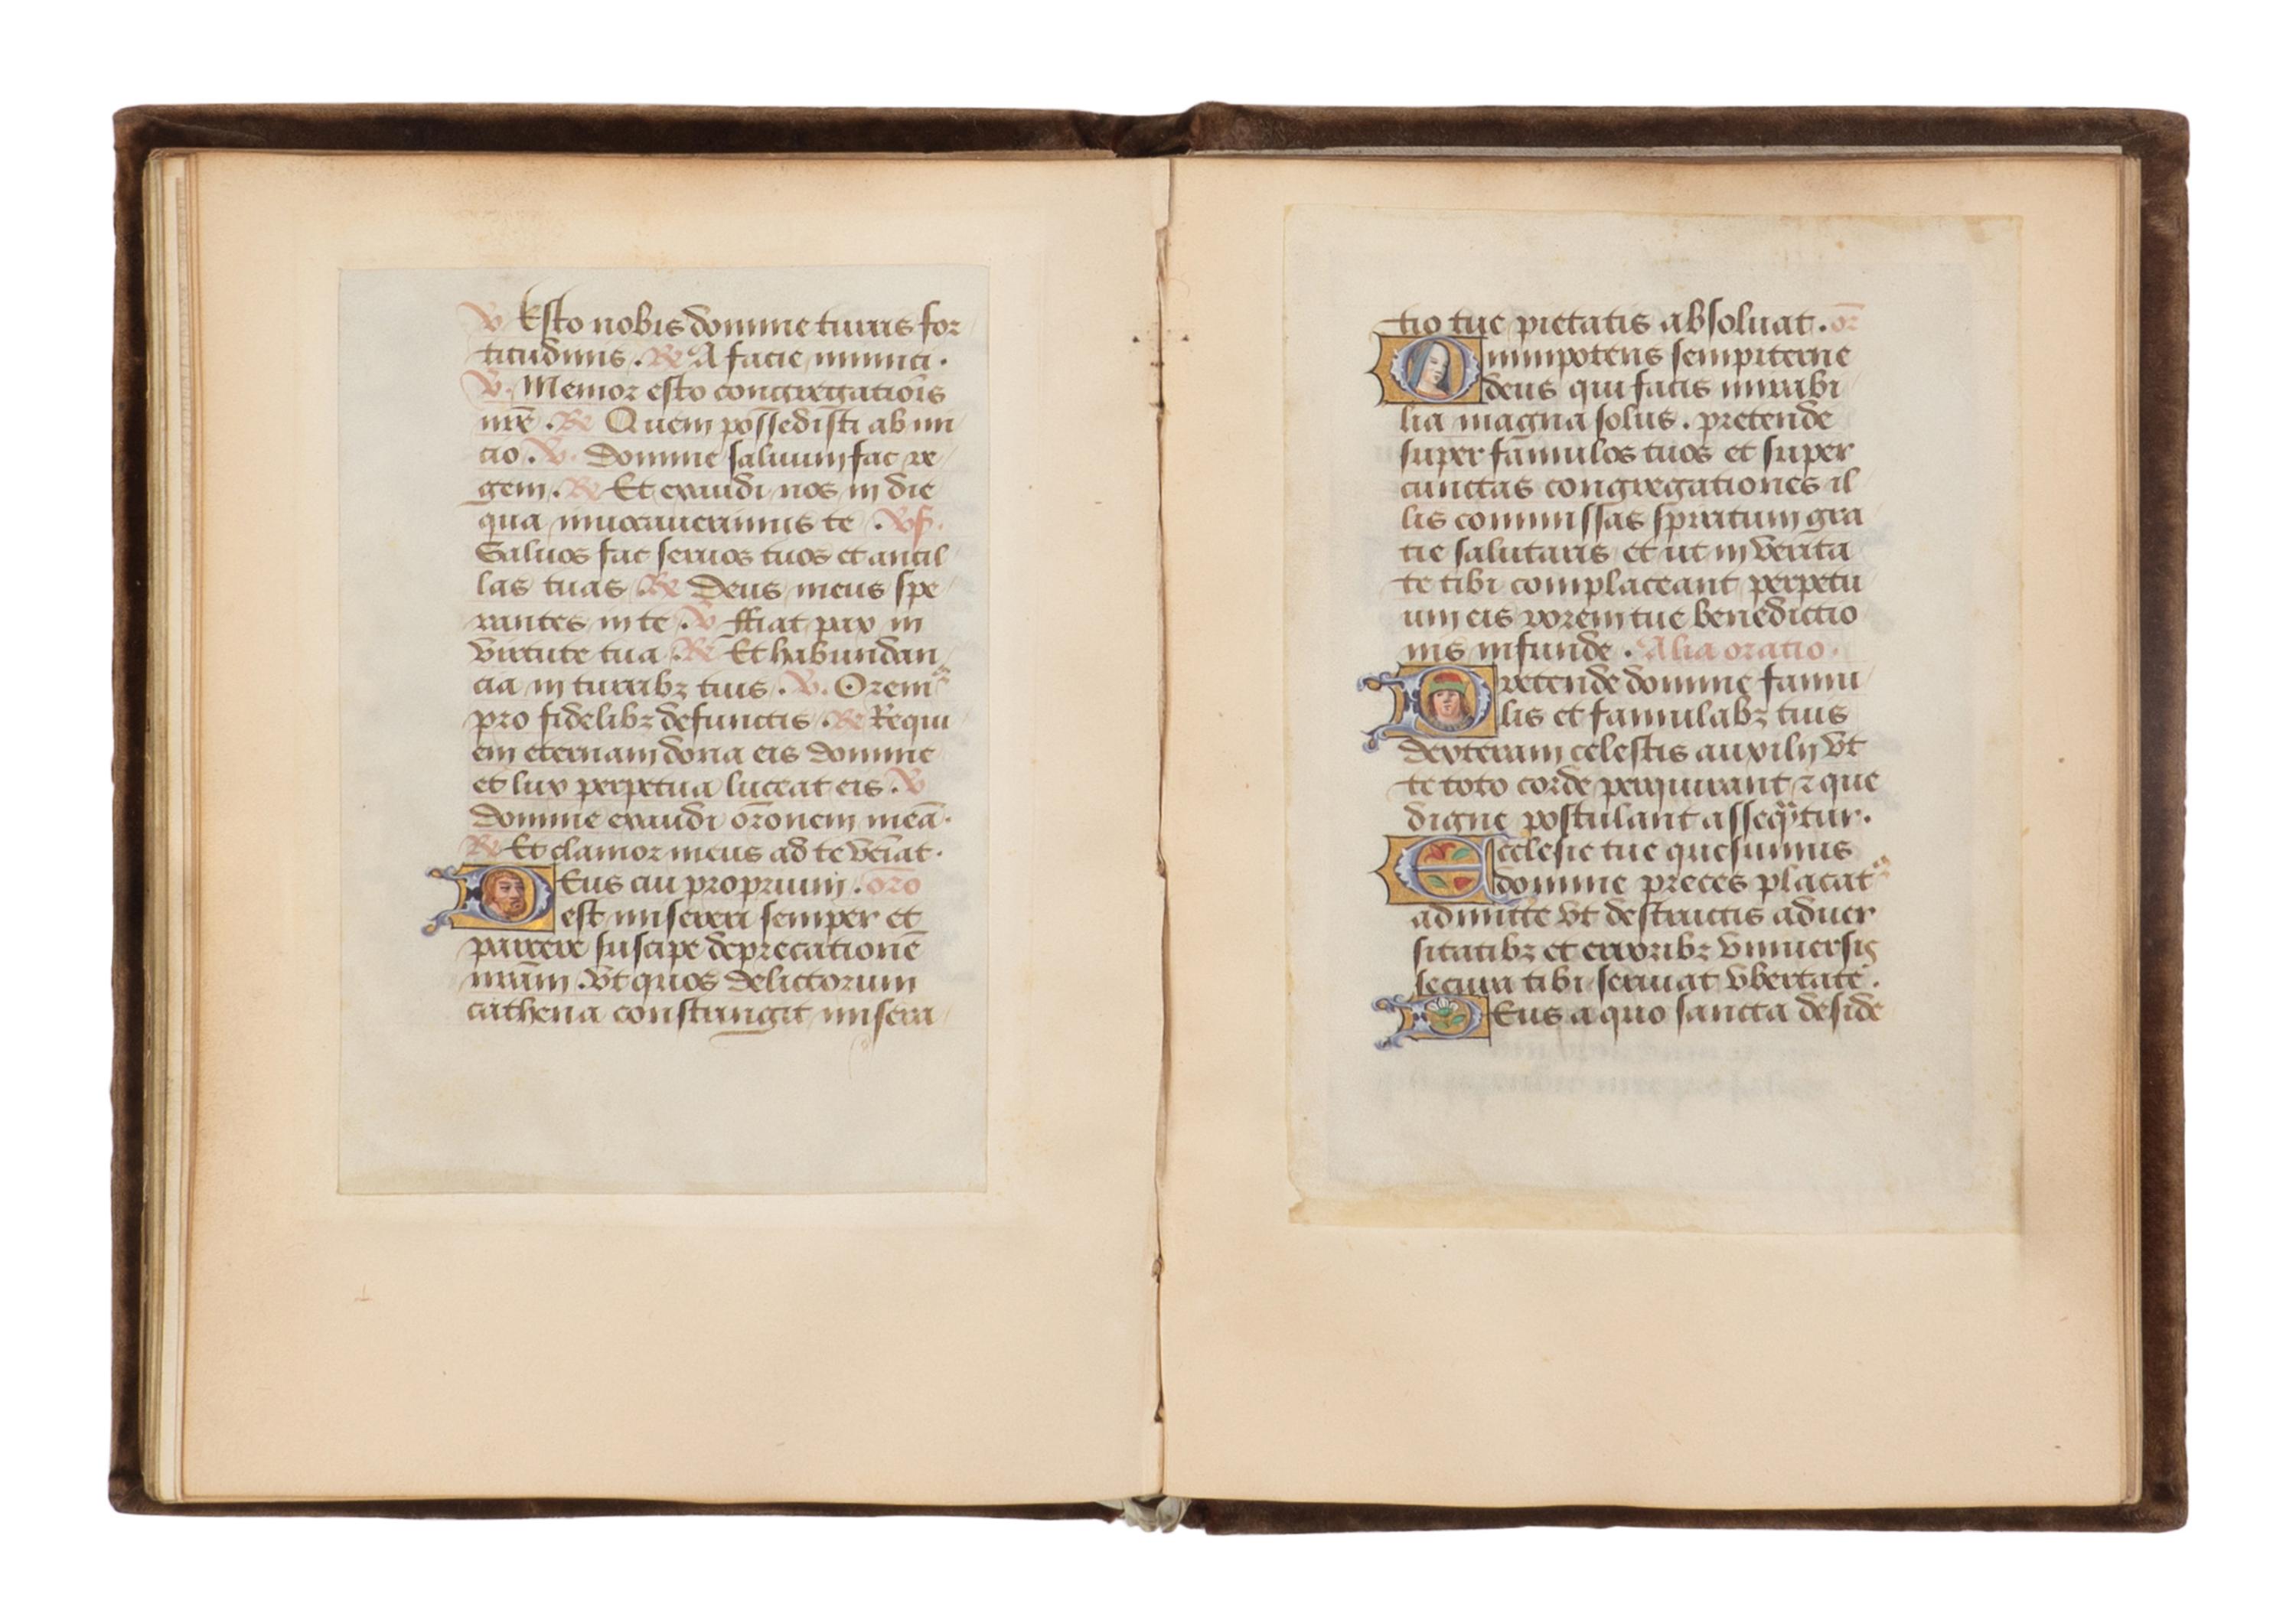 V Esto nobis domine turris for
titudinis . Re A facie inimici .
V. Memor esto congregatiōis
nrē . Re Quem possedisti ab ini
cio . V. Domine saluum fac re
gem . Re Et exaudi nos in die
qua inuocauerimus te . Vs.
Saluos fac seruos tuos et ancil
las tuas . Re Deus meus spe
rantes in te . V ffiat pax in
virtute tua . Re Et habundan
cia in turribꝫ tuis . V. Orem᷒
pro fidelibꝫ defunctis . Re Requi
em eternam dona eis domine
et lux perpetua luceat eis . V
Domine exaudi orōnem meā .
Re Et clamor meus ad te veīat .
DEus cui proprium . orō
est misereri semper et
parcere suscipe deprecationē
nrām . vt quos delictorum
cathena constringit misera
tio tue pietatis absoluat . or̄
Omnipotens sempiterne
deus qui facis mirabi
lia magna solus . pretende
super famulos tuos et super
cunctas congregationes il
lis commissas spiritum gra
tie salutaris et ut in verita
te tibi complaceant perpetu
um eis rorem tue benedictio
nis infunde . Alia oratio .
Pretende domine famu
lis et famulabꝫ tuis
dexteram celestis auxilij vt
te toto corde perquirant ⁊ que
digne postulant assequātur .
Ecclesie tue quesumus
domine preces placat᷒
admitte vt destructis aduer
sitatibꝫ et erroribꝫ vniuersis
secura tibi seruiat vbertate .
DEus a quo sancta deside